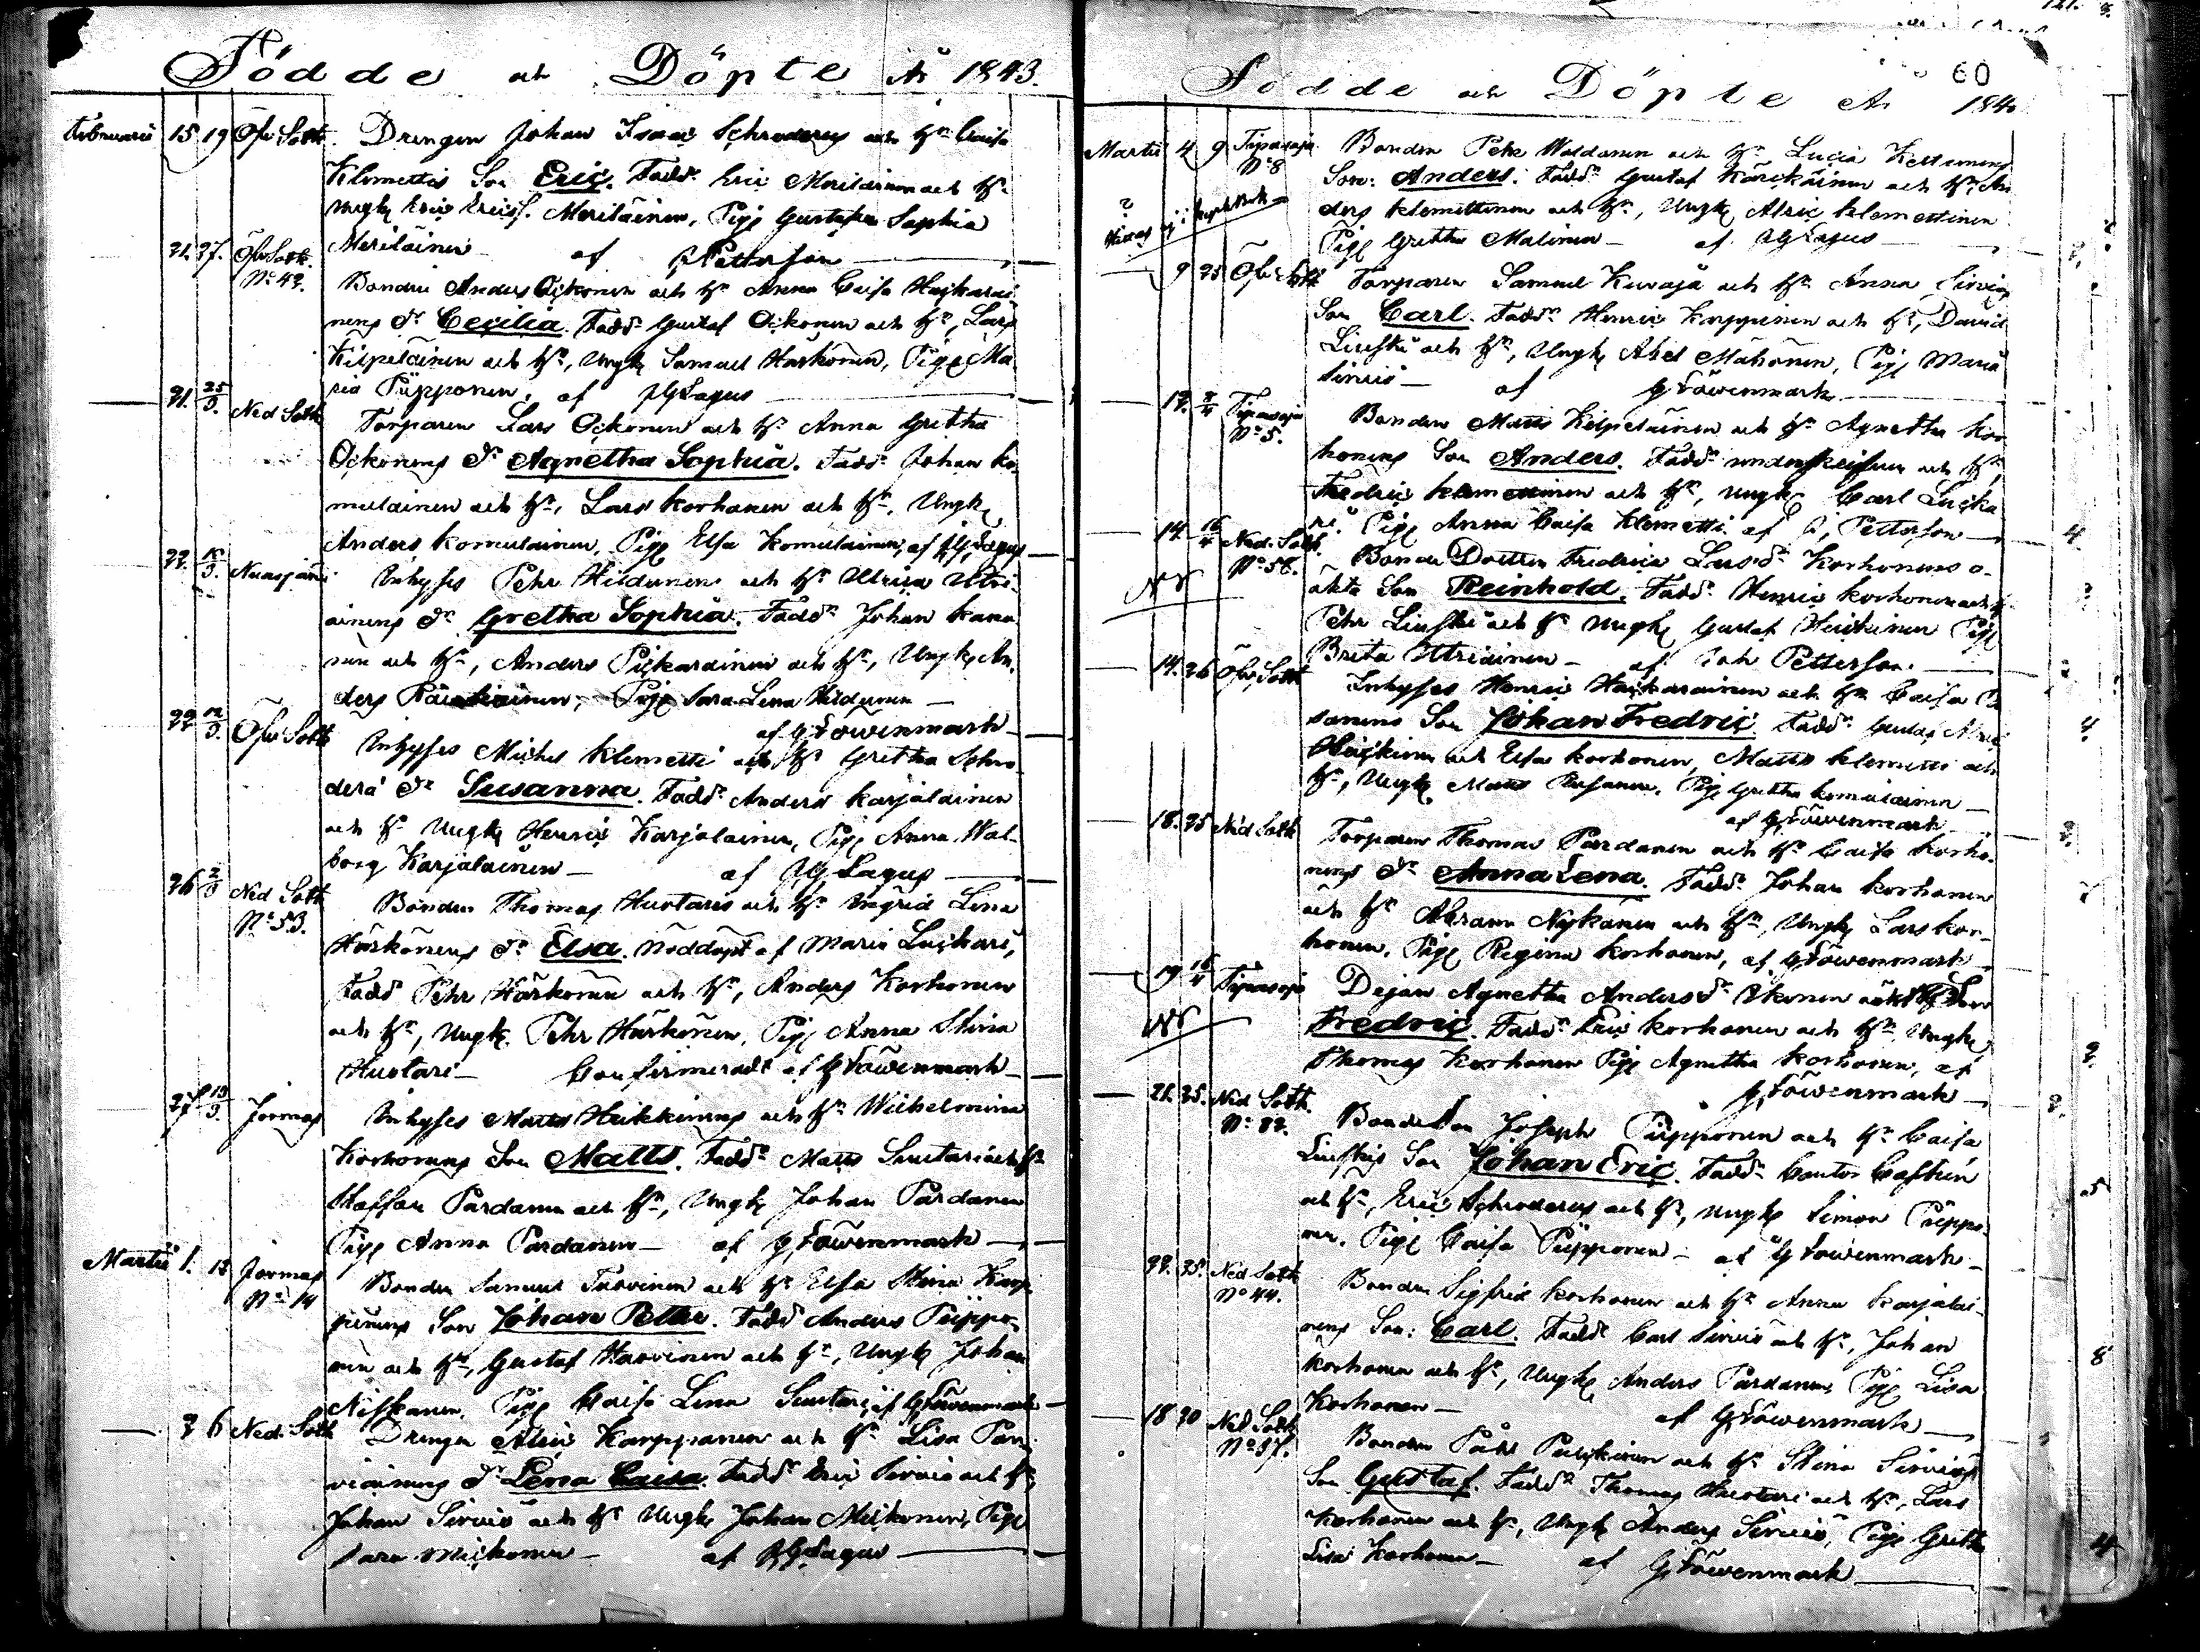 Födde och Döpte År 1843.
Februarii 15 19 Öfv Sotk. Drengen Johan Isaac Schroderus och h:u Caisa
Klemettis Son Eric. Fadd:r Eric Meriläinen och h:u
Ungk Eric Ericss. Meriläinen, Pig Gustafva Sophia
Meriläinen af J Petterson
21. 27. Öfv Sotk. N:o 42. Bonden Anders Oikonen och h:u Anna Caisa Haikarai-
nens dr Cecilia. Fadd:r Gustaf Oikonen och h:u, Lars
Kilpeläinen och h:u, Ungk Samuel Härkönen, Pig Ma-
ria Piipponen. af JG Lagus
21. 25/3. Ned Sotk Torparen Lars Oikonen och h:u Anna Gretha
Oikonens dr Agnetha Sophia. Fadd:r Johan Ko-
mulainen och h:u, Lars Korhonen och h:u, Ungk
Anders Komulainen, Pig Elsa Komulainen, af JG Lagus
22. Nuasjärvi Inhyses Pehr Hildunen och h:u Ulrica Utri-
ainens dr Gretha Sophia. Fadd:r Johan Kana-
nen och h:u, Anders Pickarainen och h:u, Ungk An-
ders Pig Sara Lena Hildunen
af G Löwenmark
22 12/3. Öfv Sotk Inhyses Michel Klemetti och h:u Gretha Schro-
dera dr Susanna. Fadd:r Anders Karjalainen
och h:u Ungk Henric Karjalainen, Pig Anna Wal-
borg Karjalainen af JG Lagus
26 2/3 Ned Sotk N:o 53. Bonden Thomas Huotaris och h:u Ingrid Lena
Härkönens dr Elsa. nöddöpt af Maria Luikari,
Fadd Pehr Härkönen och h:u, Anders Korhonen
och h:u, Ungk. Pehr Härkönen, Pig Anna Stina
Huotari Confirmeradt af G Löwenmark
27 19/3. Jormas Inhyses Matts Heikkinens och h:u Wilhelmina
Korhonens Son Matts. Fadd:r Matts Suutari och h:u
Staffan Pardanen och h:u, Ungk Johan Pardanen
Pig Anna Pardanen af G Löwenmark
Martii 1. 12 Jormas N:o 14 Bonden Samuel Turvinen och h:u Elsa Stina Karp-
pinens Son Johan Petter. Fadd:r Anders Piippo-
nen och h:u, Gustaf Harvinen och h:u, Ungk Johan
Niskanen, Pig Caisa Lena Suutari, af G Löwenmark
2 6 Ned. Sotk Drengen Alric Karppanen och h:u Lisa Par-
viainens dr Lena Caisa. Fadd:r Eric Sirviö och h:u,
Johan Sirviö och h:u Ungk Johan Mickonen, Pig
Sara Mickonen af JG Lagus
60
Födde och Döpte År 184
Martii 4 9 Tipasoja N:o 8 Bonden Petter Moldanen och h:u Lucia Kettunens
Son: Anders. Fadd:r Gustaf Kärckäinen och h:u An-
ders Klemettinen och h:u, Ungk Alric Klemettinen
Pig Gretha Malinen af JG Lagus
9 25 Öfv Sotk Torparen Samuel Kuvaja och h:u Anna Sirviös
Son Carl. Fadd:r Henric Karppinen och h:u, David
Liuski och h:u, Ungk Abel Mähönen, Pig Maria
Sirviö af G Löwenmark
12. Tipasoja N:o 5. Bonden Matts Kilpeläinen och h:u Agnetha Kor-
honens Son Anders. Fadd:r underskrifvaren och h:u
Fredric Klemettinen och h:u, Ungk Carl Luika-
ri Pig Anna Caisa Klemetti. af J, Petterson
14. 16/4 Ned. Sotk. N:o 58. Bonde Dottren Fredrica Larsdr Korhonens o-
äkta Son Reinhold. Fadd:r Henric Korhonen och h
Pehr Liuski och h:u Ungk Gustaf Heikinen Pig
Brita Utriainen af Joh Petterson.
14. 26 Öfv Sotk Inhyses Henric Haikarainen och h:u Caisa
sanens Son Johan Fredric. Fadd:r
Heickinen och Elsa Korhonen, Matts Klemetti och
h:u, Ungk Matts Pig Gretha Komulainen
af G Löwenmark
18. 25 Ned Sotk Torparen Thomas Pardanen och h:u Caisa Korho-
nens dr Anna Lena. Fadd:r Johan Korhonen
och h:u Abram Nykänen och h:u, Ungk Lars Kor-
honen, Pig Regina Korhonen, af G Löwenmark
19 16/4 Tipasoja Dejan Agnetha Andersdr Okonen
Fredric. Fadd:r Eric Korhonen och h:u, Ungk
Thomas Korhonen Pig Agnetha Korhonen, af
G Löwenmark
21. 25. Ned Sotk. N:o 82. Bonde Son Joseph Piipponen och h:u Caisa
Liuskis Son Johan Eric. Fadd:r Cantor Castrén
och h:u, Eric Schroderus och h:u, Ungk Simon Piippo-
nen. Pig Caisa Piipponen af G Löwenmark
22. 25. Ned Sotk N:o 44. Bonden Sigfrid Korhonen och h:u Anna Karjalai-
nens Son: Carl. Fadd:r Carl Sirviö och h:u, Johan
Korhonen och h:u, Ungk Anders Pardanen, Pig Lisa
Korhonen af G Löwenmark
18 20 Ned Sotk N:o 37. Bonden Påhl Pulkinen och h:u Stina Sirviös
Son Gustaf. Fadd:r Thomas Huotari och h:u, Lars
Korhonen och h:u, Ungk Anders Sirviö, Pig Greth
Lisa Korhonen af G Löwenmark